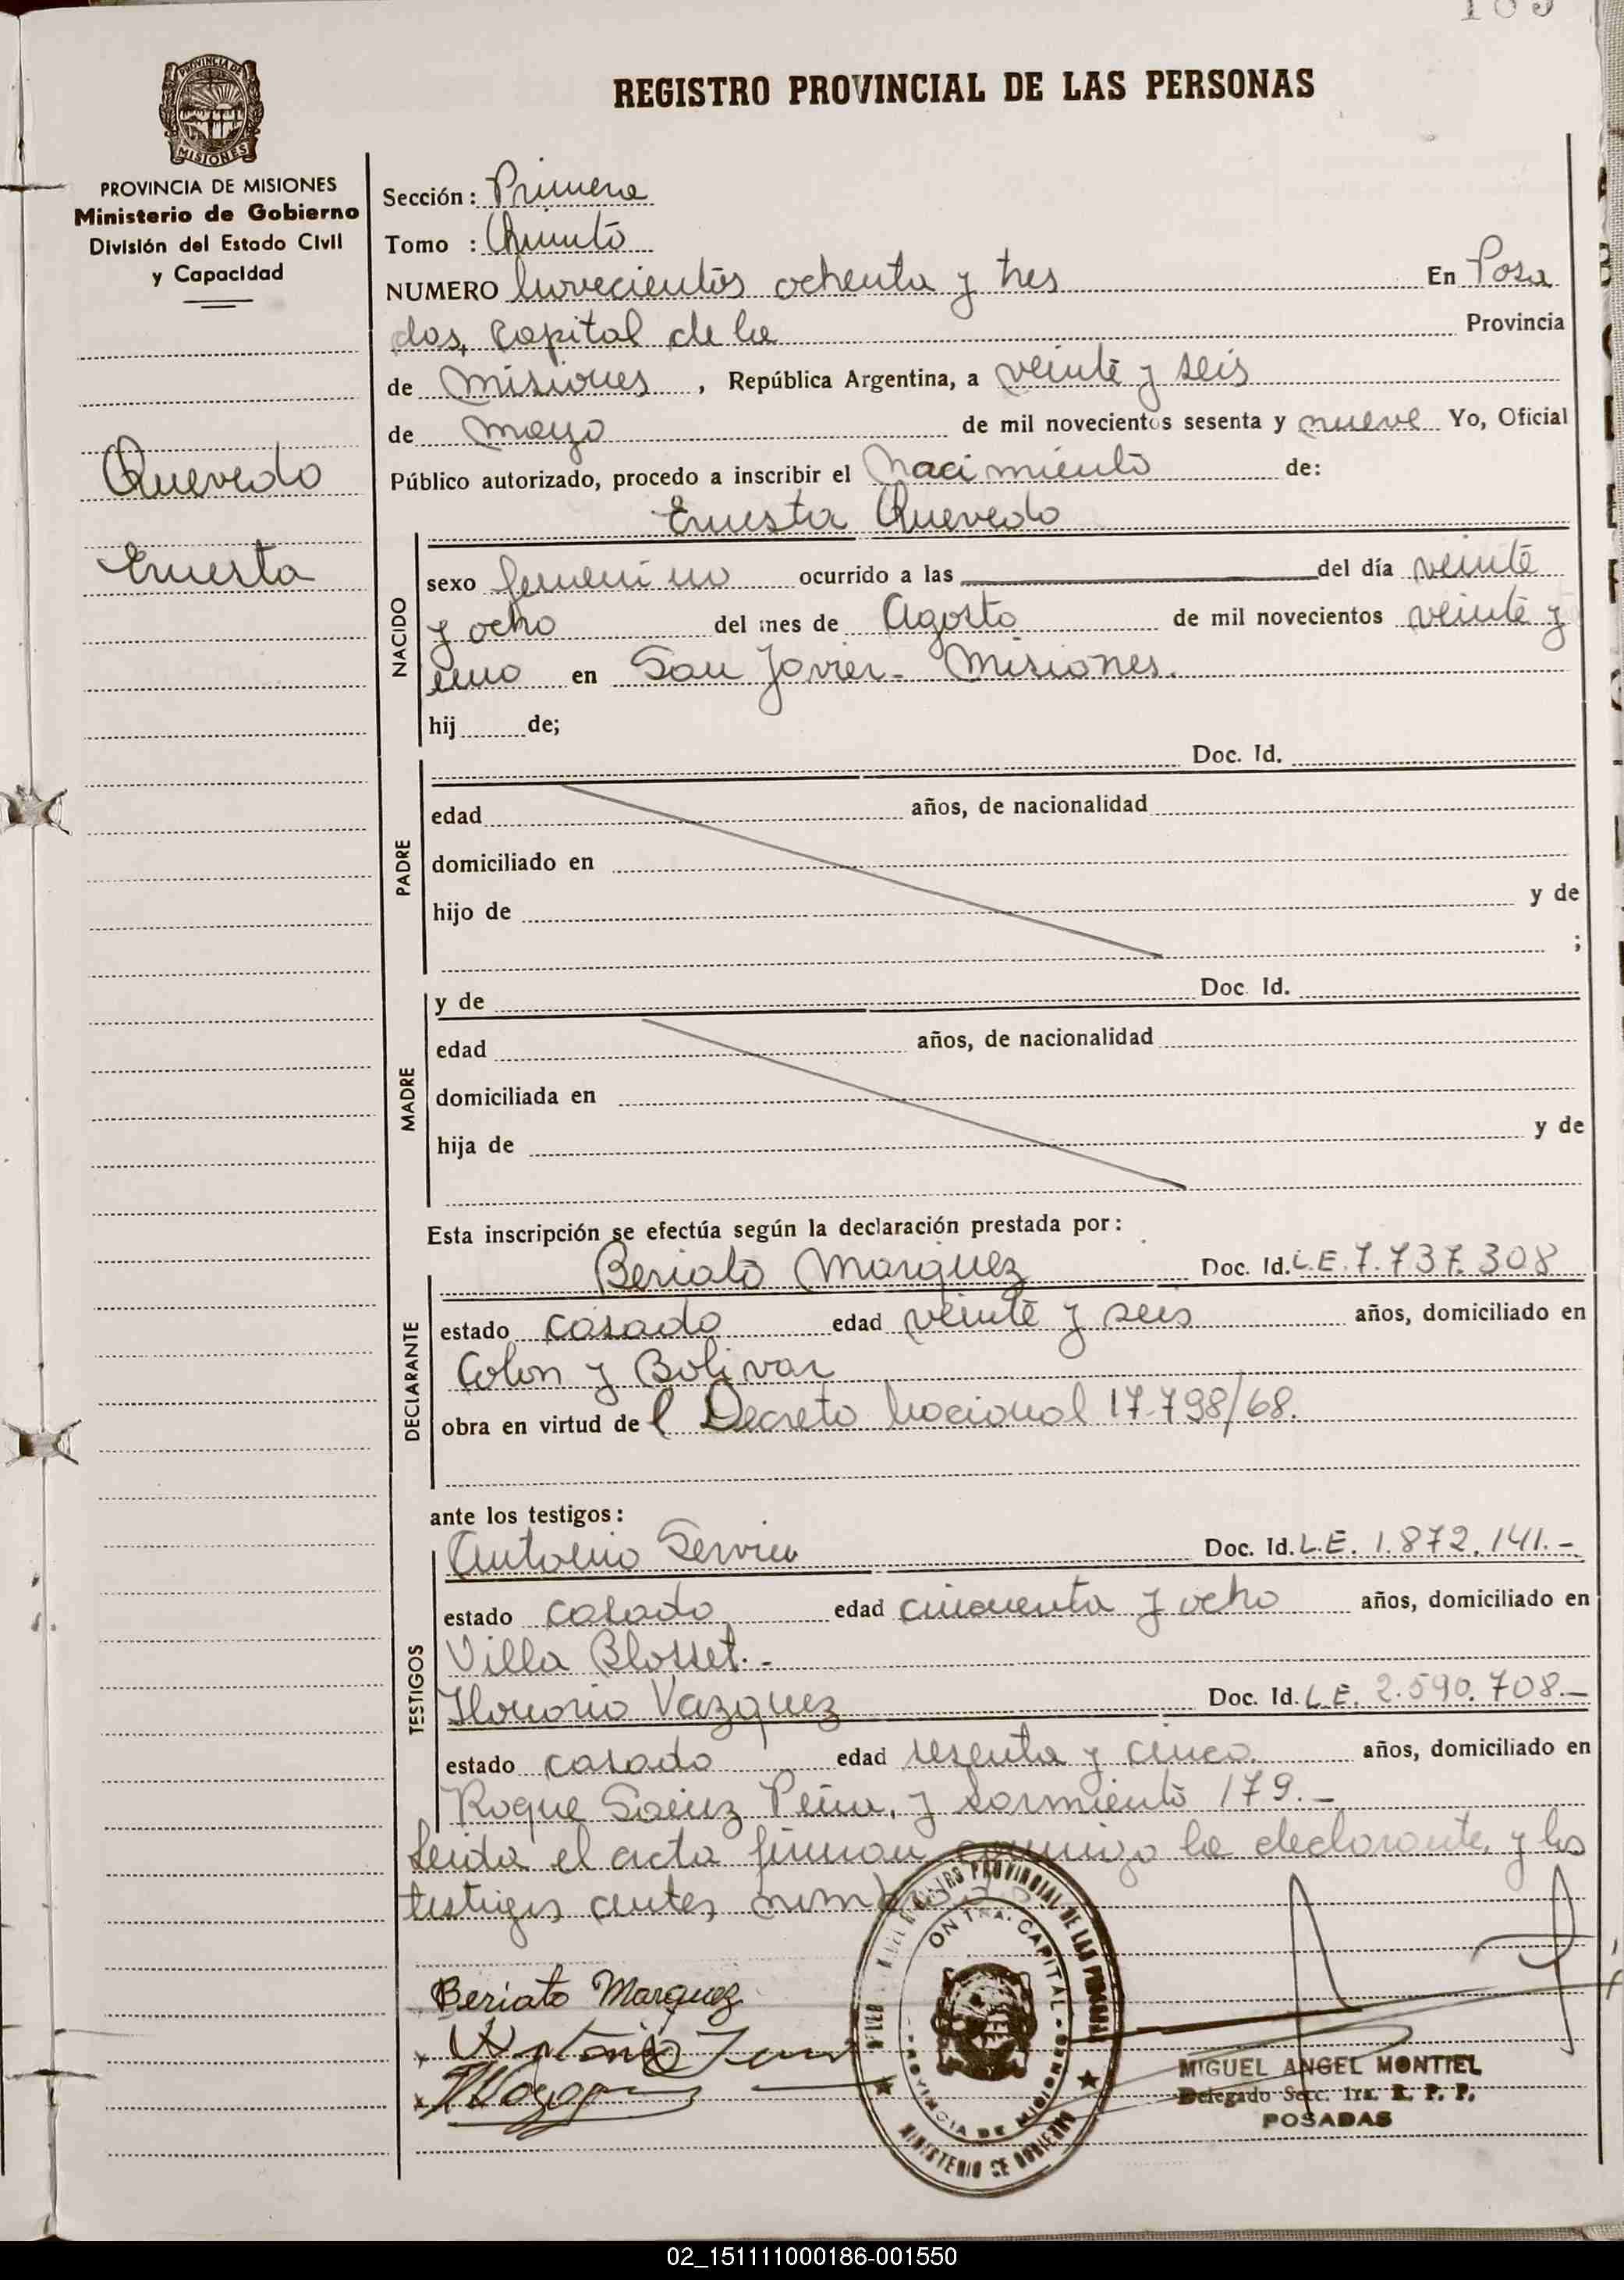 REGISTRO PROVINCIAL DE LAS PERSONAS
PROVINCIA DE MISIONES
Ministerio de Gobierno
División del Estado Civil
y Capacidad
Quevedo
Ernesta
Sección: Primera
Tomo : Quinto
NUMERO Novecientos ochenta y tres En Posa
das, capital de la Provincia
de Misiones, República Argentina, a veinte y seis
de mayo de mil novecientos sesenta y nueve Yo, Oficial
Público autorizado, procedo a inscribir el Nacimiento de:
Ernesta Quevedo
NACIDO
sexo femenino ocurrido a las del día veinte
y ocho del mes de Agosto de mil novecientos veinte y
uno en San Javier - Misiones.
hij de;
PADRE
Doc. Id.
edad años, de nacionalidad
domiciliado en
hijo de y de
;
MADRE
y de Doc. Id.
edad años, de nacionalidad
domiciliada en
hija de y de
Esta inscripción se efectúa según la declaración prestada por:
DECLARANTE
Beriato Marquez Doc. Id. L.E. 7.737.308
estado casado edad veinte y seis años, domiciliado en
Colon y Bolivar
obra en virtud del Decreto Nacional 17.798/68.
ante los testigos:
TESTIGOS
Antonio Doc. Id. L.E. 1.872.141.-
estado casado edad cincuenta y ocho años, domiciliado en
Villa Blosset.-
Honorio Vazquez Doc. Id. L.E. 2.590.708.-
estado casado edad sesenta y cinco años, domiciliado en
Roque Saenz Peña, y Sarmiento 179.-
Leida el acta firman conmigo la declarante, y los
testigos antes
Beriato Marquez
PROVINCIAL DE LAS
CAPITAL
PROVINCIA DE MISIONES
MINISTERIO DE GOBIERNO
MIGUEL ANGEL MONTIEL
Delegado Secc. 1ra. R. P. P.
POSADAS
02_151111000186-001550